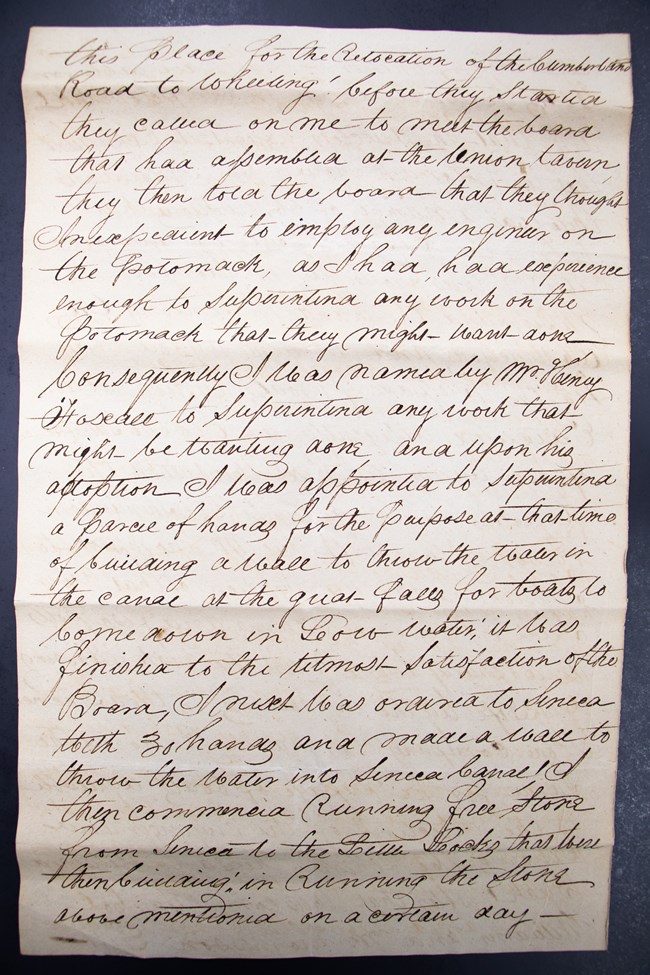 this Place for the Relocation of the Cumberland
Road to Wheeling! before they Started
they called on me to meet the board
that had assembled at the Union tavern,
they then told the board that they thought
Inexpedient to employ any engineer on
the Potomack, as I had, had experience
enough to Superintend any work on the
Potomack that they might want done
Consequently I was named by Mr. Henry
Foxall to Superintend any work that
might be wanting done and upon his
adoption I was appointed to Superintend
a Parcel of hands for the Purpose at that time
of building a wall to throw the water in
the canal at the great Falls for boats to
Come down in Low water, it was
finished to the utmost Satisfaction of the
Board, I next was ordered to Seneca
with 30 hands and made a wall to
throw the water into Seneca Canal! I
then commenced Running free Stone
from Seneca to the Little Locks that were
then building! in Running the Stone
above mentioned on a certain day —